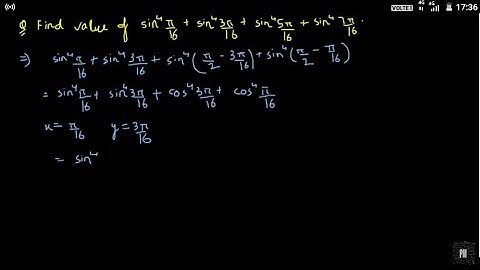 VOLTE 4G 4G 17:36
Q Find value of sin⁴ π/16 + sin⁴ 3π/16 + sin⁴ 5π/16 + sin⁴ 7π/16.
⇒) sin⁴ π/16 + sin⁴ 3π/16 + sin⁴ (π/2 - 3π/16) + sin⁴ (π/2 - π/16)
= sin⁴ π/16 + sin⁴ 3π/16 + cos⁴ 3π/16 + cos⁴ π/16
x = π/16 y = 3π/16
= sin⁴